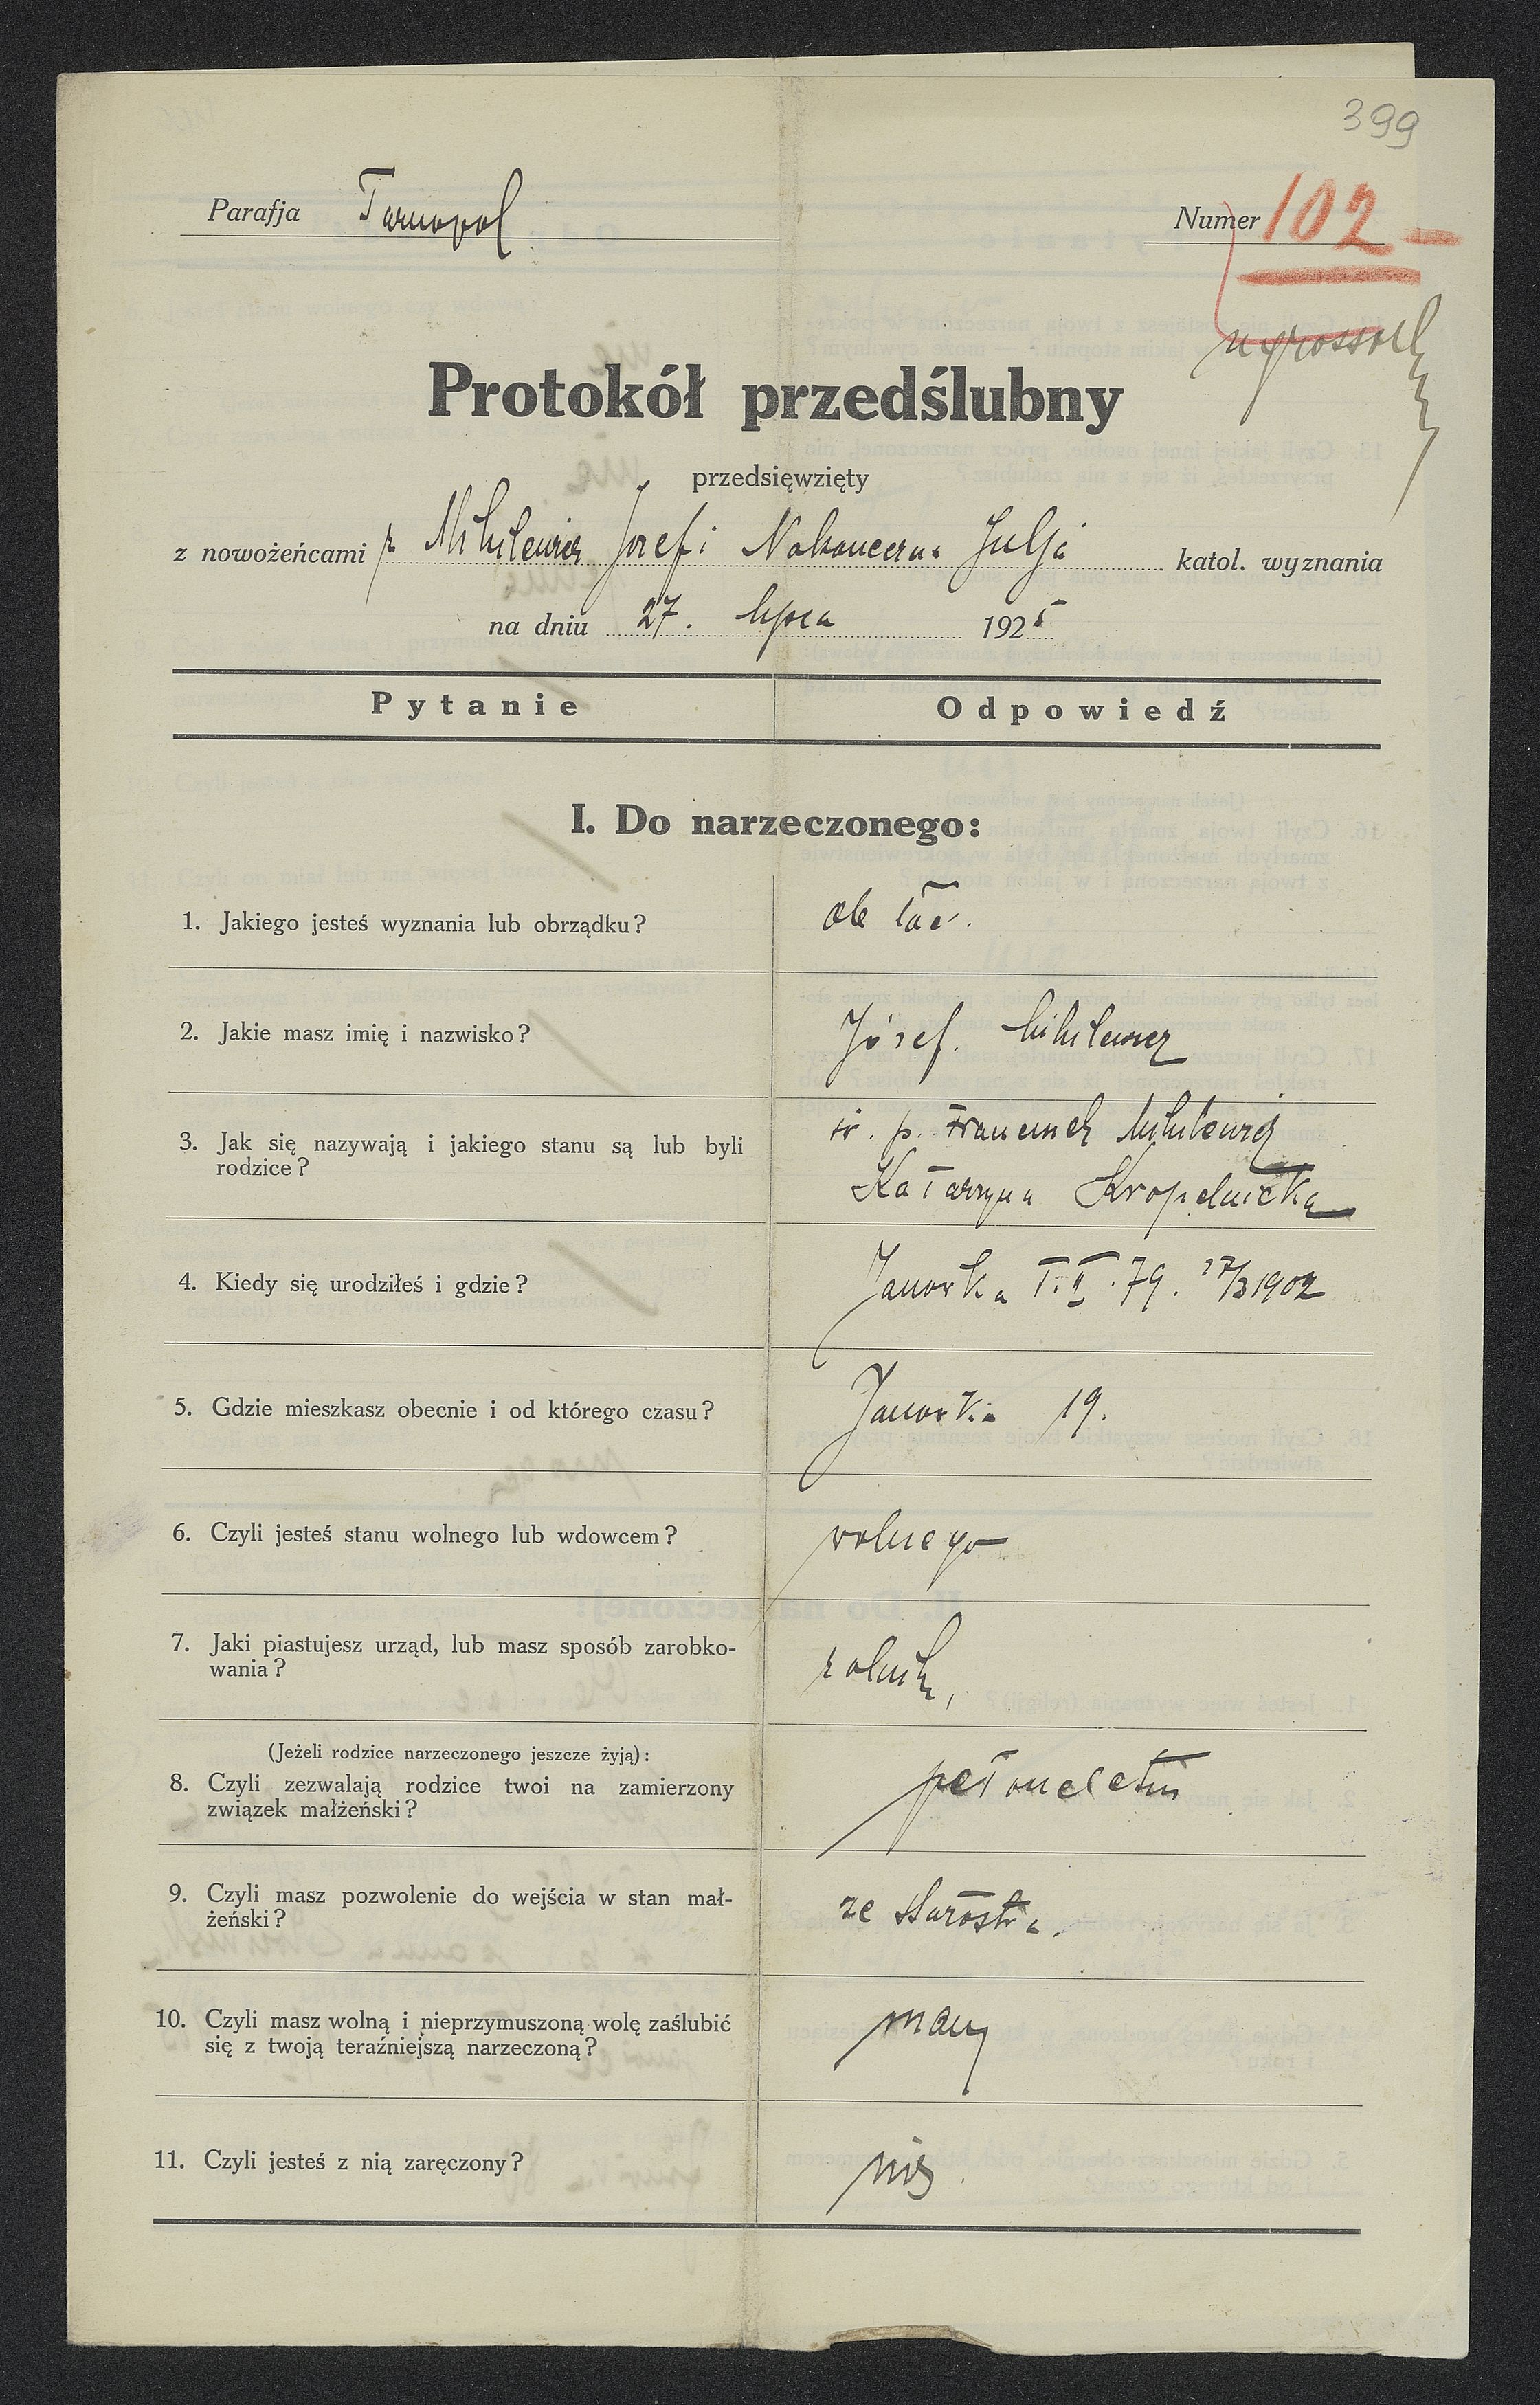 399
Parafja Tarnopol
Numer 102
Protokół przedślubny
przedsięwzięty
z nowożeńcami Józef i Julja katol. wyznania
na dniu 27. lipca 1925
Pytanie Odpowiedź
I. Do narzeczonego:
1. Jakiego jesteś wyznania lub obrządku? ob łać.
2. Jakie masz imię i nazwisko? Józef Mikulewicz
3. Jak się nazywają i jakiego stanu są lub byli ś. p. Franciszek Mikulewicz
rodzice? Katarzyna Kropelnicka
4. Kiedy się urodziłeś i gdzie? Janówka T. II. 79. 27/3 1902
5. Gdzie mieszkasz obecnie i od którego czasu? Janówka 19.
6. Czyli jesteś stanu wolnego lub wdowcem? wolnego
7. Jaki piastujesz urząd, lub masz sposób zarobko-
wania? rolnik,
(Jeżeli rodzice narzeczonego jeszcze żyją):
8. Czyli zezwalają rodzice twoi na zamierzony pełnoletni
związek małżeński?
9. Czyli masz pozwolenie do wejścia w stan mał-
żeński? ze Starostwa.
10. Czyli masz wolną i nieprzymuszoną wolę zaślubić mam
się z twoją teraźniejszą narzeczoną?
11. Czyli jesteś z nią zaręczony? nie